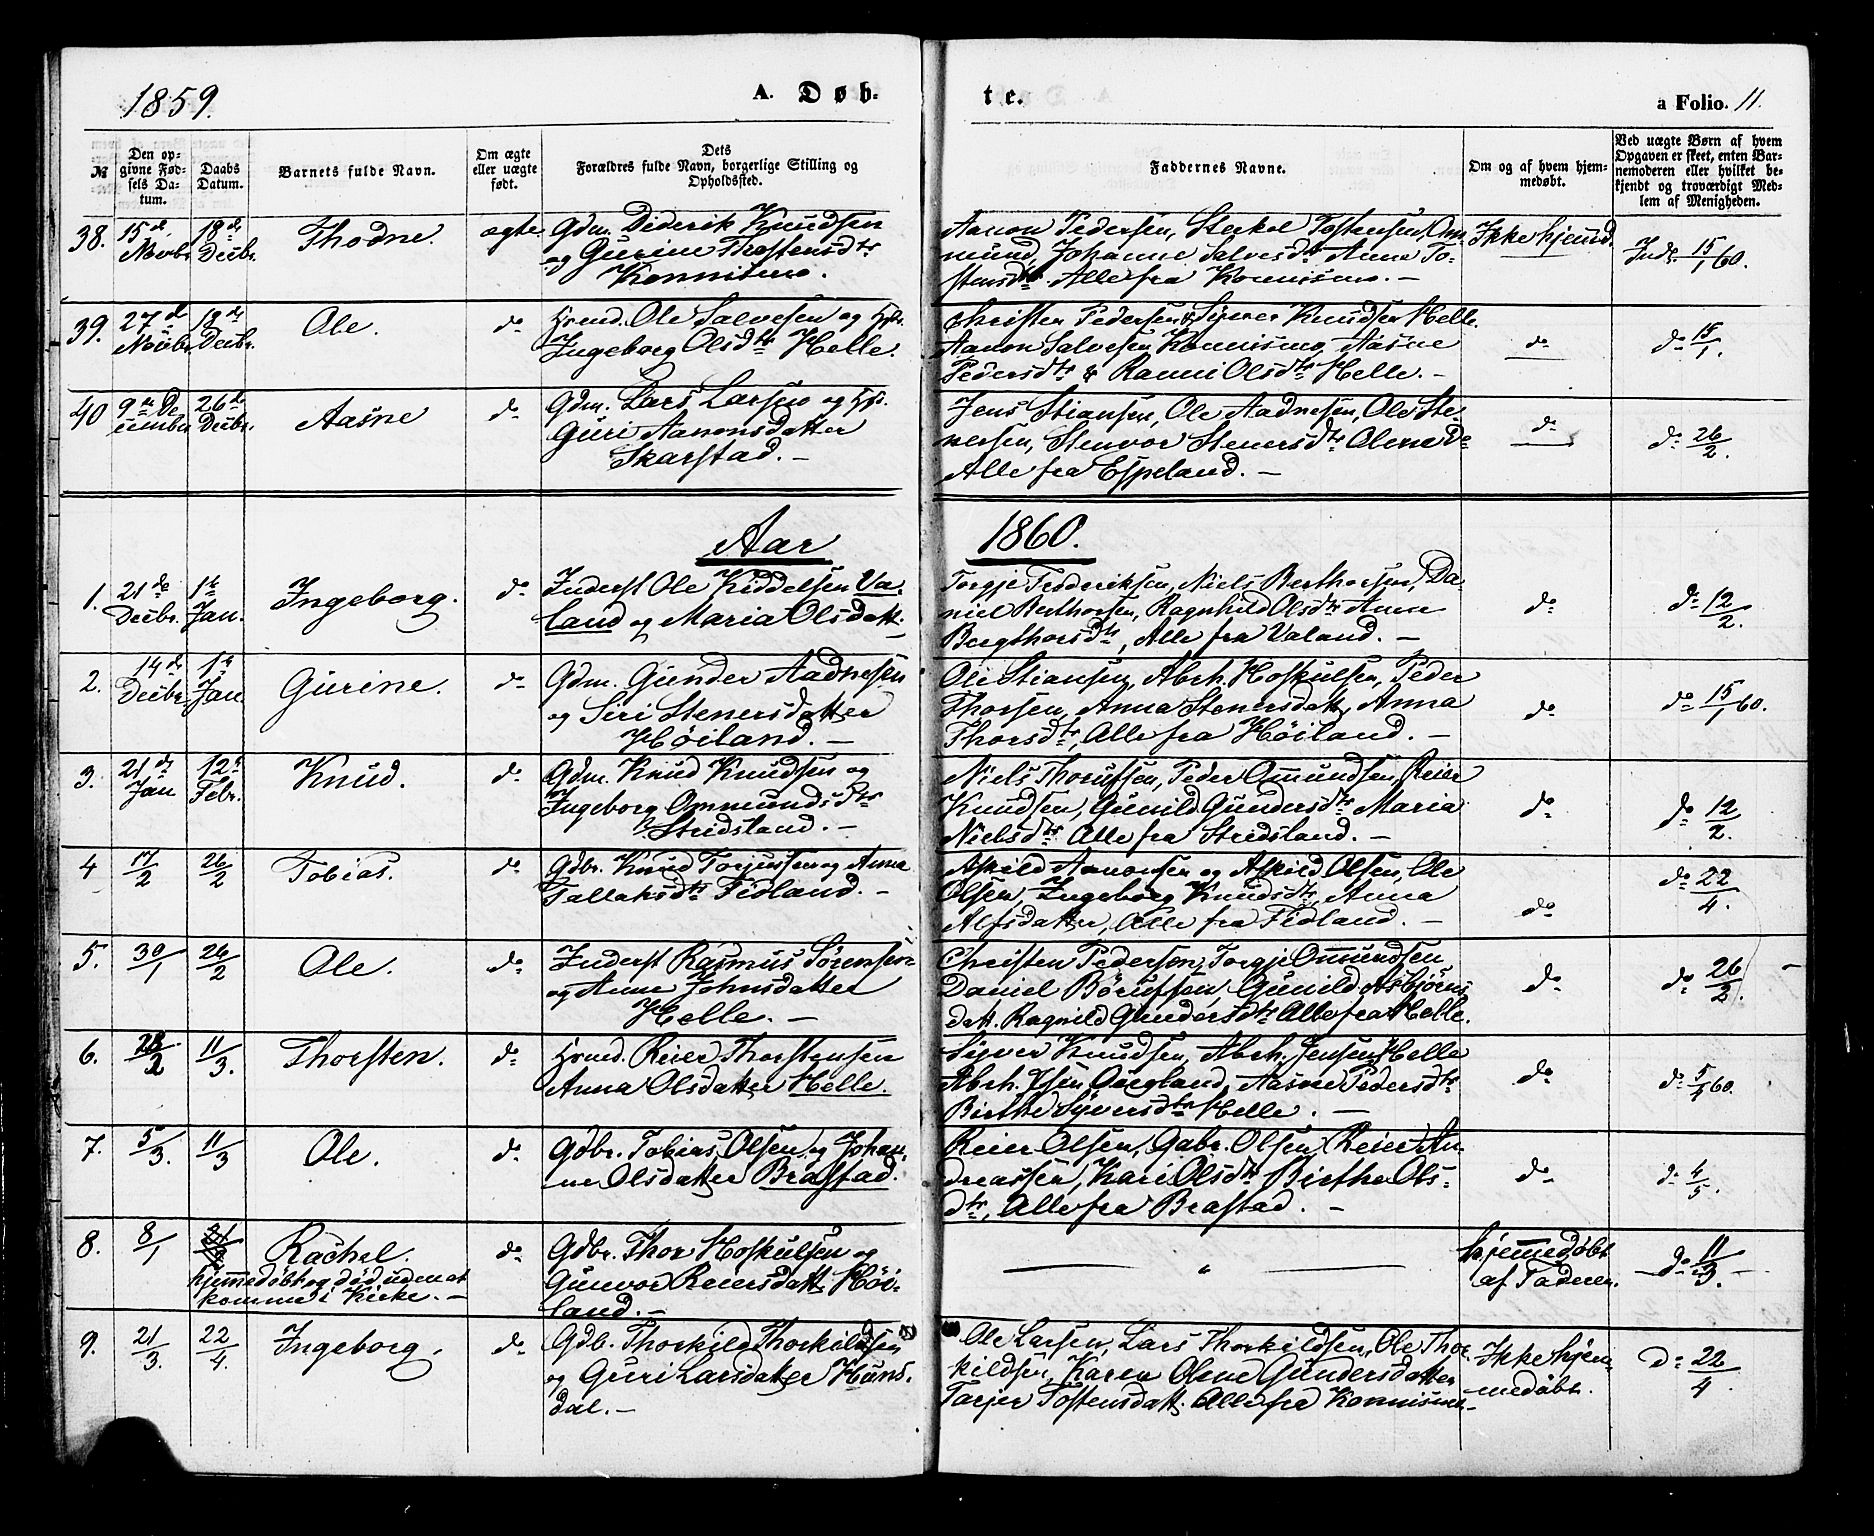 1859.
A. Døb-
te.
a Folio. 11.
№
Den op-
givne Fød-
sels Da-
tum.
Daabs
Datum.
Barnets fulde Navn.
Om ægte
eller uægte
født.
Dets
Forældres fulde Navn, borgerlige Stilling og
Opholdssted.
Faddernes Navne.
Om og af hvem hjem-
medøbt.
Ved uægte Børn af hvem
Opgaven er skeet, enten Bar-
nemoderen eller hvilket be-
kjendt og troværdigt Med-
lem af Menigheden.
38. 15d. Novbr. 18de Decbr. Thodne. ægte.
Gdm. Diderik Knudsen
og Gurine Tostensdtr
Konnismo.
Aanon Pedersen, Sterkol Tostensen, Om-
mund, Johanne Salvesdtr Anna To-
stensdtr. Alle fra Konnismo. -
Ikke hjemd.
Inds. 15/1 60.
39. 27d Novbr. 18de Decbr. Ole. do
Hrmd. Ole Salvesen og Hst.
Ingeborg Olsdtr Helle.
Christen Pedersen & Syver Knudsen Helle.
Aanon Salvesen Konnismo, Aasne
Pedersdtr & Ranni Olsdtr Helle. -
do
do 15/1.
40 9de De-
cember 26de Decbr. Aasne do
Gdm. Lars Larsen og Hst.
Guri Aanonsdatter
Skarstad. -
Jens Stiansen, Ole Aadnesen, Ole Ste-
nersen, Stenvor Stenersdtr Olene do
Alle fra Espeland. -
do
do 26/2.
Aar 1860.
1. 21de Decbr. 1te Jan. Ingeborg. do
Inderst Ole Kiddelsen Va-
land og Maria Olsdatt. -
Torgje Fredriksen, Niels Berthorsen, Da-
niel Berthorsen, Ragnhild Olsdtr Anne
Bergthorsdtr, Alle fra Valand. -
do
do 12/2.
2. 14de Decbr. 1te Jan. Gurine. do
Gdm. Gunder Aadnesen
og Siri Stenersdatter
Høiland. -
Ole Stiansen, Abrh. Hoskulsen, Peder
Thorsen, Anna Stenersdatt, Anna
Thorsdtr, Alle fra Høiland. -
do
do 15/1 60.
3. 21de Jan 12te Febr. Knud. do
Gdm. Knud Knudsen og
Ingeborg Ommundsdtr
Stridsland. -
Niels Thorufsen, Peder Omundsen, Reier
Knudsen, Gunild Gundersdtr Maria
Nielsdtr Alle fra Stridsland. -
do
do 12/2.
4 17/2 26/2 Tobias. do
Gdbr. Knud Torjussen og Anna
Tallaksdtr Fidland. -
Askild Aanonsen og Askild Olsen, Ole
Olsen, Ingeborg Knudsdtr, Anna
Alfsdatter, Alle fra Fidland. -
do
do 22/4.
5. 30/1 26/2 Ole. do
Inderst Rasmus Sørensen
og Anne Johnsdatter
Helle. -
Christen Pedersen, Torgje Omundsen
Daniel Børufsen, Gunild Asbjørns
datt. Ragnild Gundersdtr Alle fra Helle.
do
do 26/2. -
6. 28/2 11/3. Thorsten. do
Hrmd. Reier Thorstensen
Anna Olsdatter Helle.
Syver Knudsen, Abrh. Jensen Helle
Abrh. Jsen Øregland, Aasne Pedersdtr
Birthe Syversdtr Helle. -
do
do 5/4 60.
7. 5/3. 11/3 Ole. do
Gdbr. Tobias Olsen og Johan-
ne Olsdatter Brastad.
Reier Olsen, Gabr. Olsen, Reier An-
dreassen, Kari Olsdtr Birthe Ols-
dtr, Alle fra Brastad. -
do
do 4/5.
8. 8/1 Rachel.
hjemmedøbt og død uden at
komme i Kirke. -
do
Gdbr. Thor Hoskulsen og
Gunvor Reiersdatt. Høi-
land. -
"
hjemmedøbt
af Faderen.
do 11/3. -
9. 21/3. 22/4. Ingeborg. do
Gdb. Thorkild Thorkildsen
og Guri Larsdatter Huns-
dal. -
Ole Larsen, Lars Thorkildsen, Ole Thor-
kildsen, Karen Olene Gundersdatter
Torjer Tostensdatt. Alle fra Konnismo -
Ikke hjem-
medøbt.
do 22/4